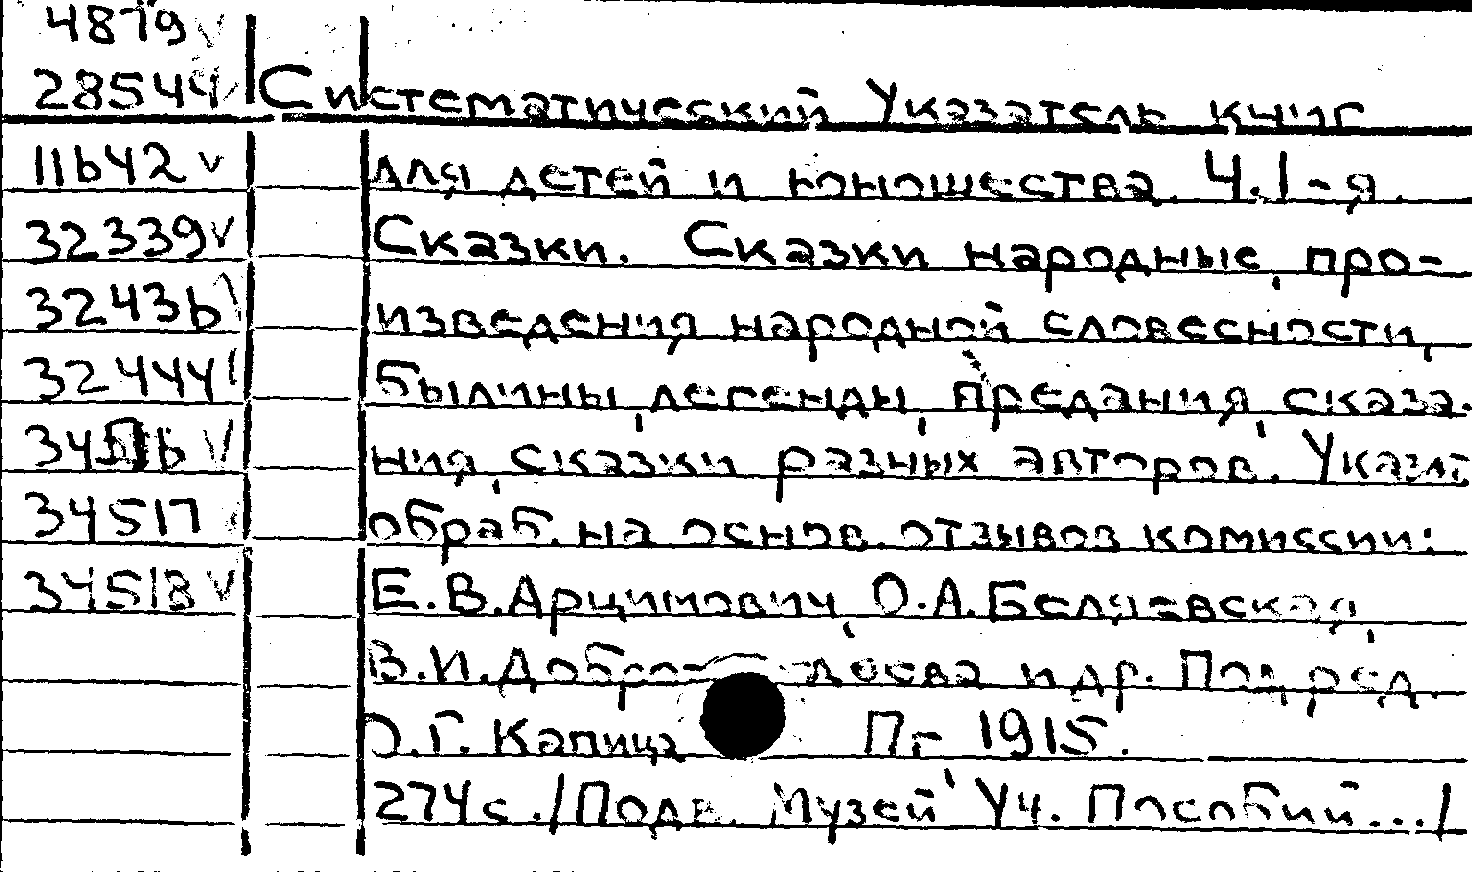 4879 v
28544 v Систематический Указатель книг
11642 v для детей и юношества. Ч.1-я.
32339 v Сказки. Сказки народные, про-
32436 изведения народной словесности,
32444 былины, легенды, предания, сказа-
v ния, сказки разных авторов. Указат.
34517 обраб. на основ. отзывов комиссии:
34518 v Е.В.Арцимович, О.А.Беляевская,
В.И. и др. Под ред.
О.Г. Капица Пг, 1915.
274 с. /Подв. Музей Уч. Пособий.../